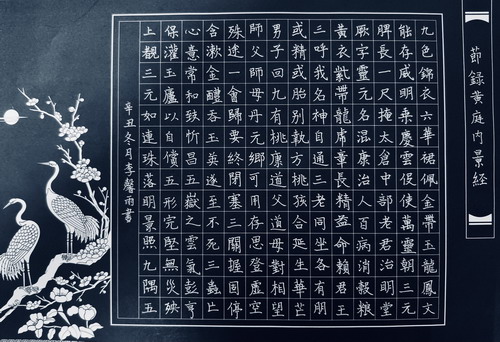 節錄黃庭內景經
九色錦衣六華裙佩金帶玉龍鳳文
能存威明乘慶雲役使萬靈朝三元
脾長一尺掩太倉中部老君治明堂
厥字靈元名混康治人百病消穀糧
黃衣紫帶龍虎章長精益命賴君王
三呼我名神自通三老同坐各有朋
或精或胎別執方桃孩合延生華芒
男子回九有桃康道父道母對相望
師父師母丹元鄉可用存思登虛空
殊途一會歸要終閉塞三關握固停
含漱金醴吞玉英遂至不死三蟲亡
心意常和致欣昌五嶽之雲氣彭亨
保灌玉廬以自償五形完堅無災殃
上觀三元如連珠落明景照九隅五
辛丑冬月李馨雨書